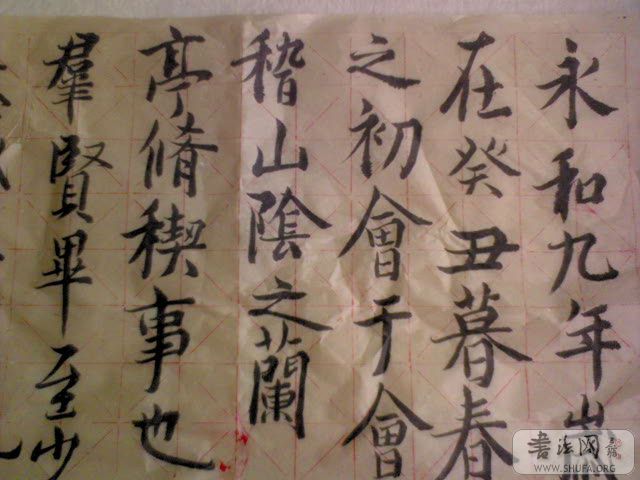 永和九年歲
在癸丑暮春
之初會于會
稽山陰之蘭
亭脩稧事也
羣賢畢至少
書法网
WWW.SHUFA.ORG